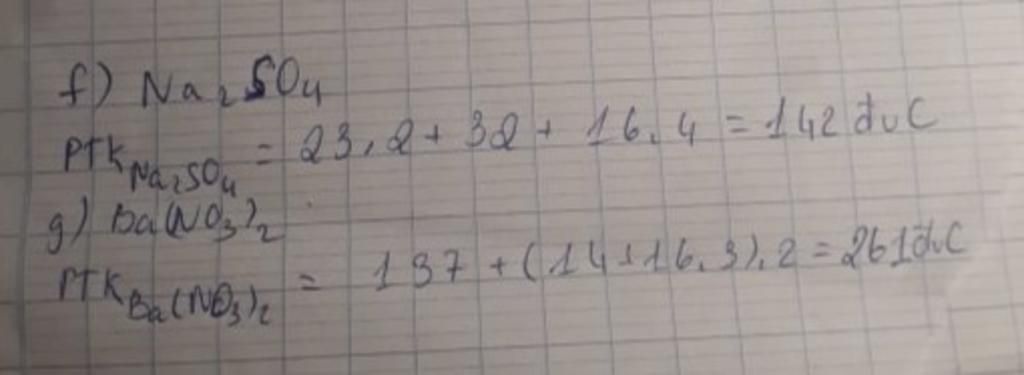 f) Na₂SO₄
PTK Na₂SO₄ = 23.2 + 32 + 16.4 = 142 đvC
g) Ba(NO₃)₂
PTK Ba(NO₃)₂ = 137 + (14 + 16.3).2 = 261 đvC